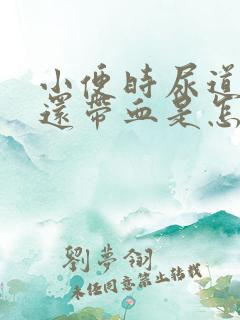 小便時尿道
還帶血是怎
劉夢翎
未經同意禁止轉載